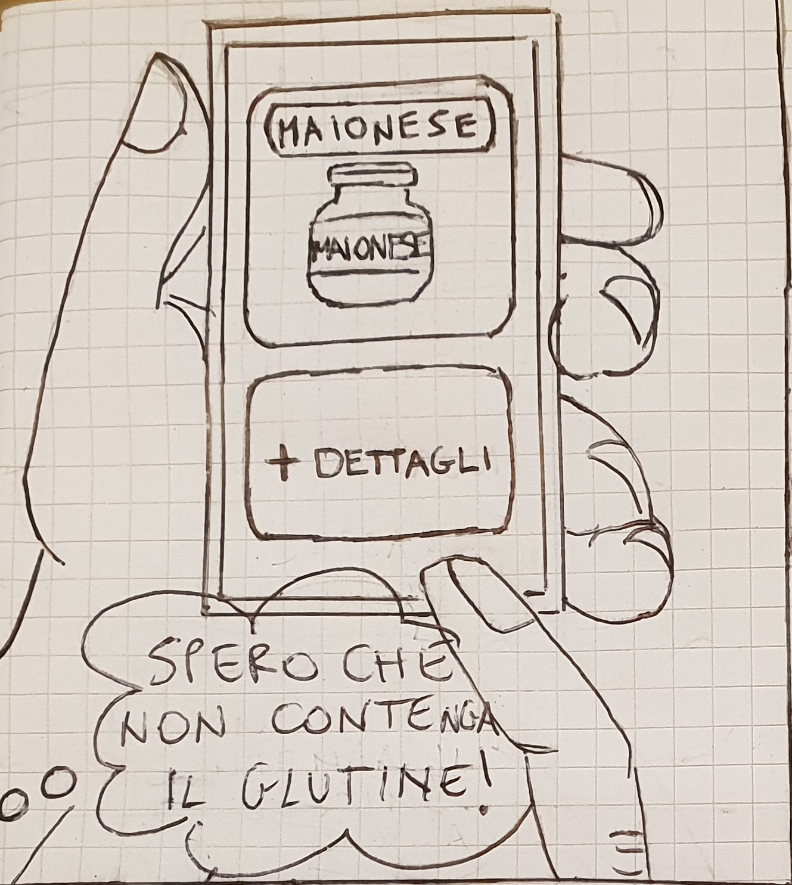 MAIONESE
MAIONESE
+ DETTAGLI
SPERO CHE
NON CONTENGA
IL GLUTINE!